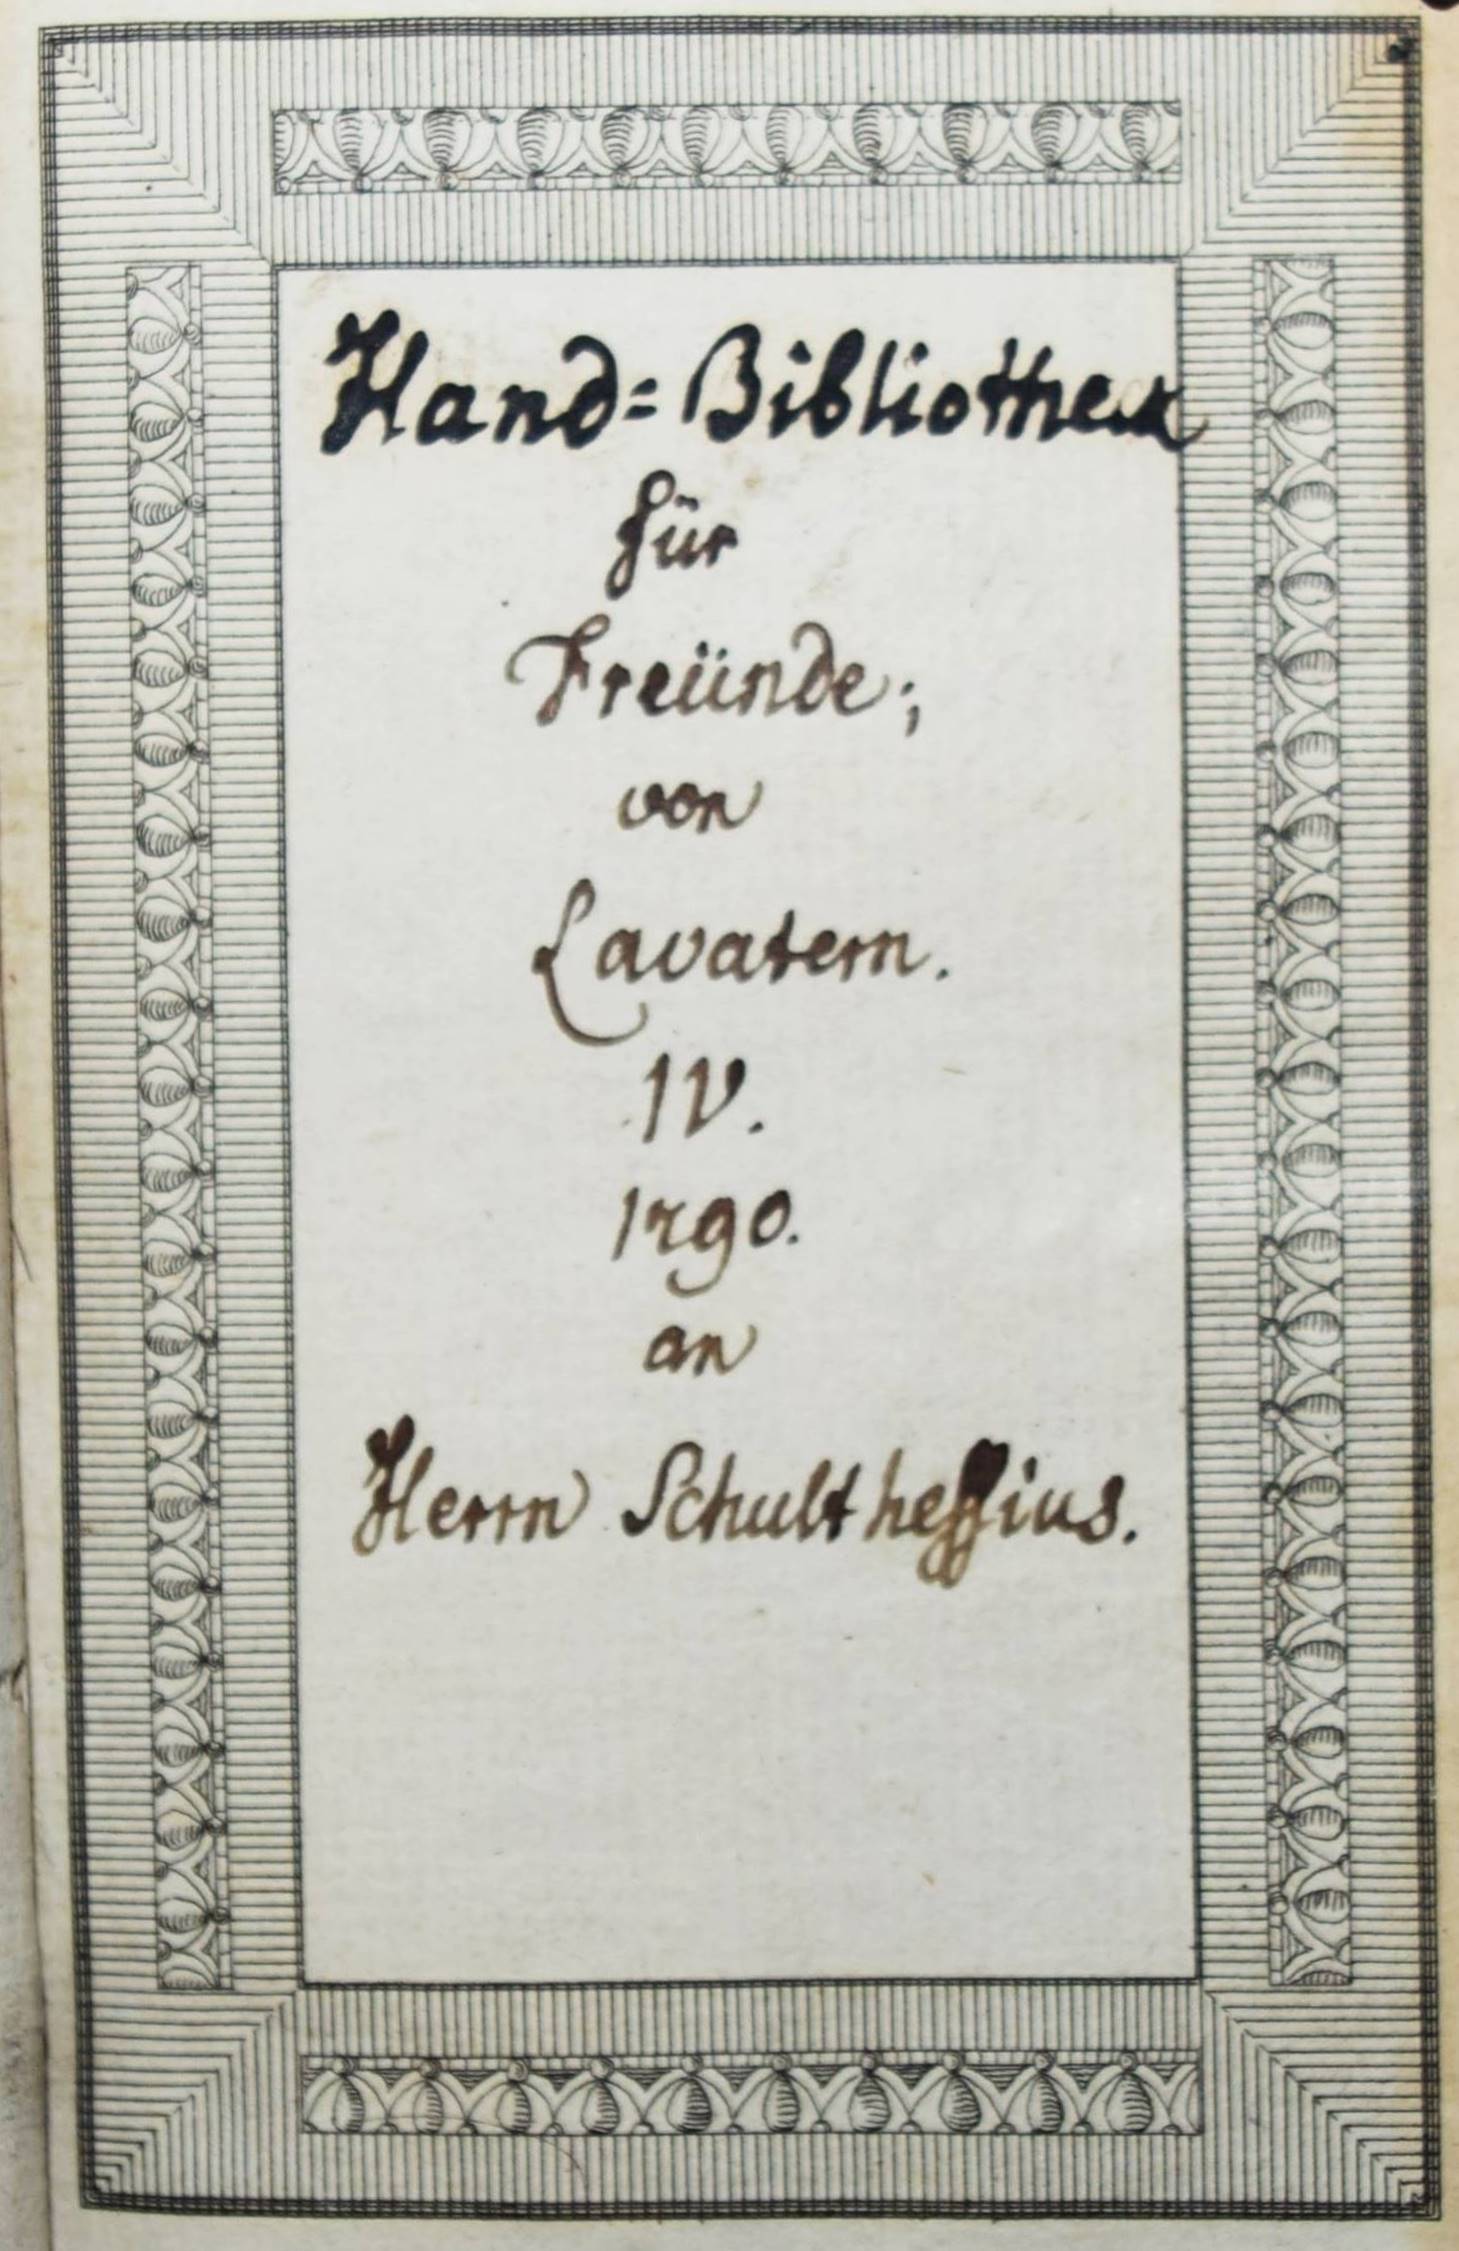 Hand=Bibliothek
für
Freünde;
von
Lavatern.
IV.
1790.
an
Herrn Schultheſſius.